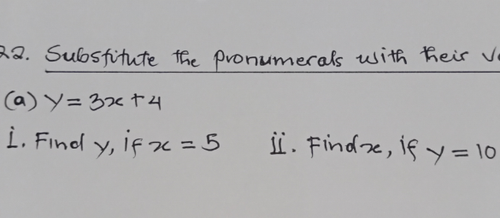 22. Substitute the pronumerals with their
(a) y = 3x + 4
i. Find y, if x = 5 ii. Find x, if y = 10